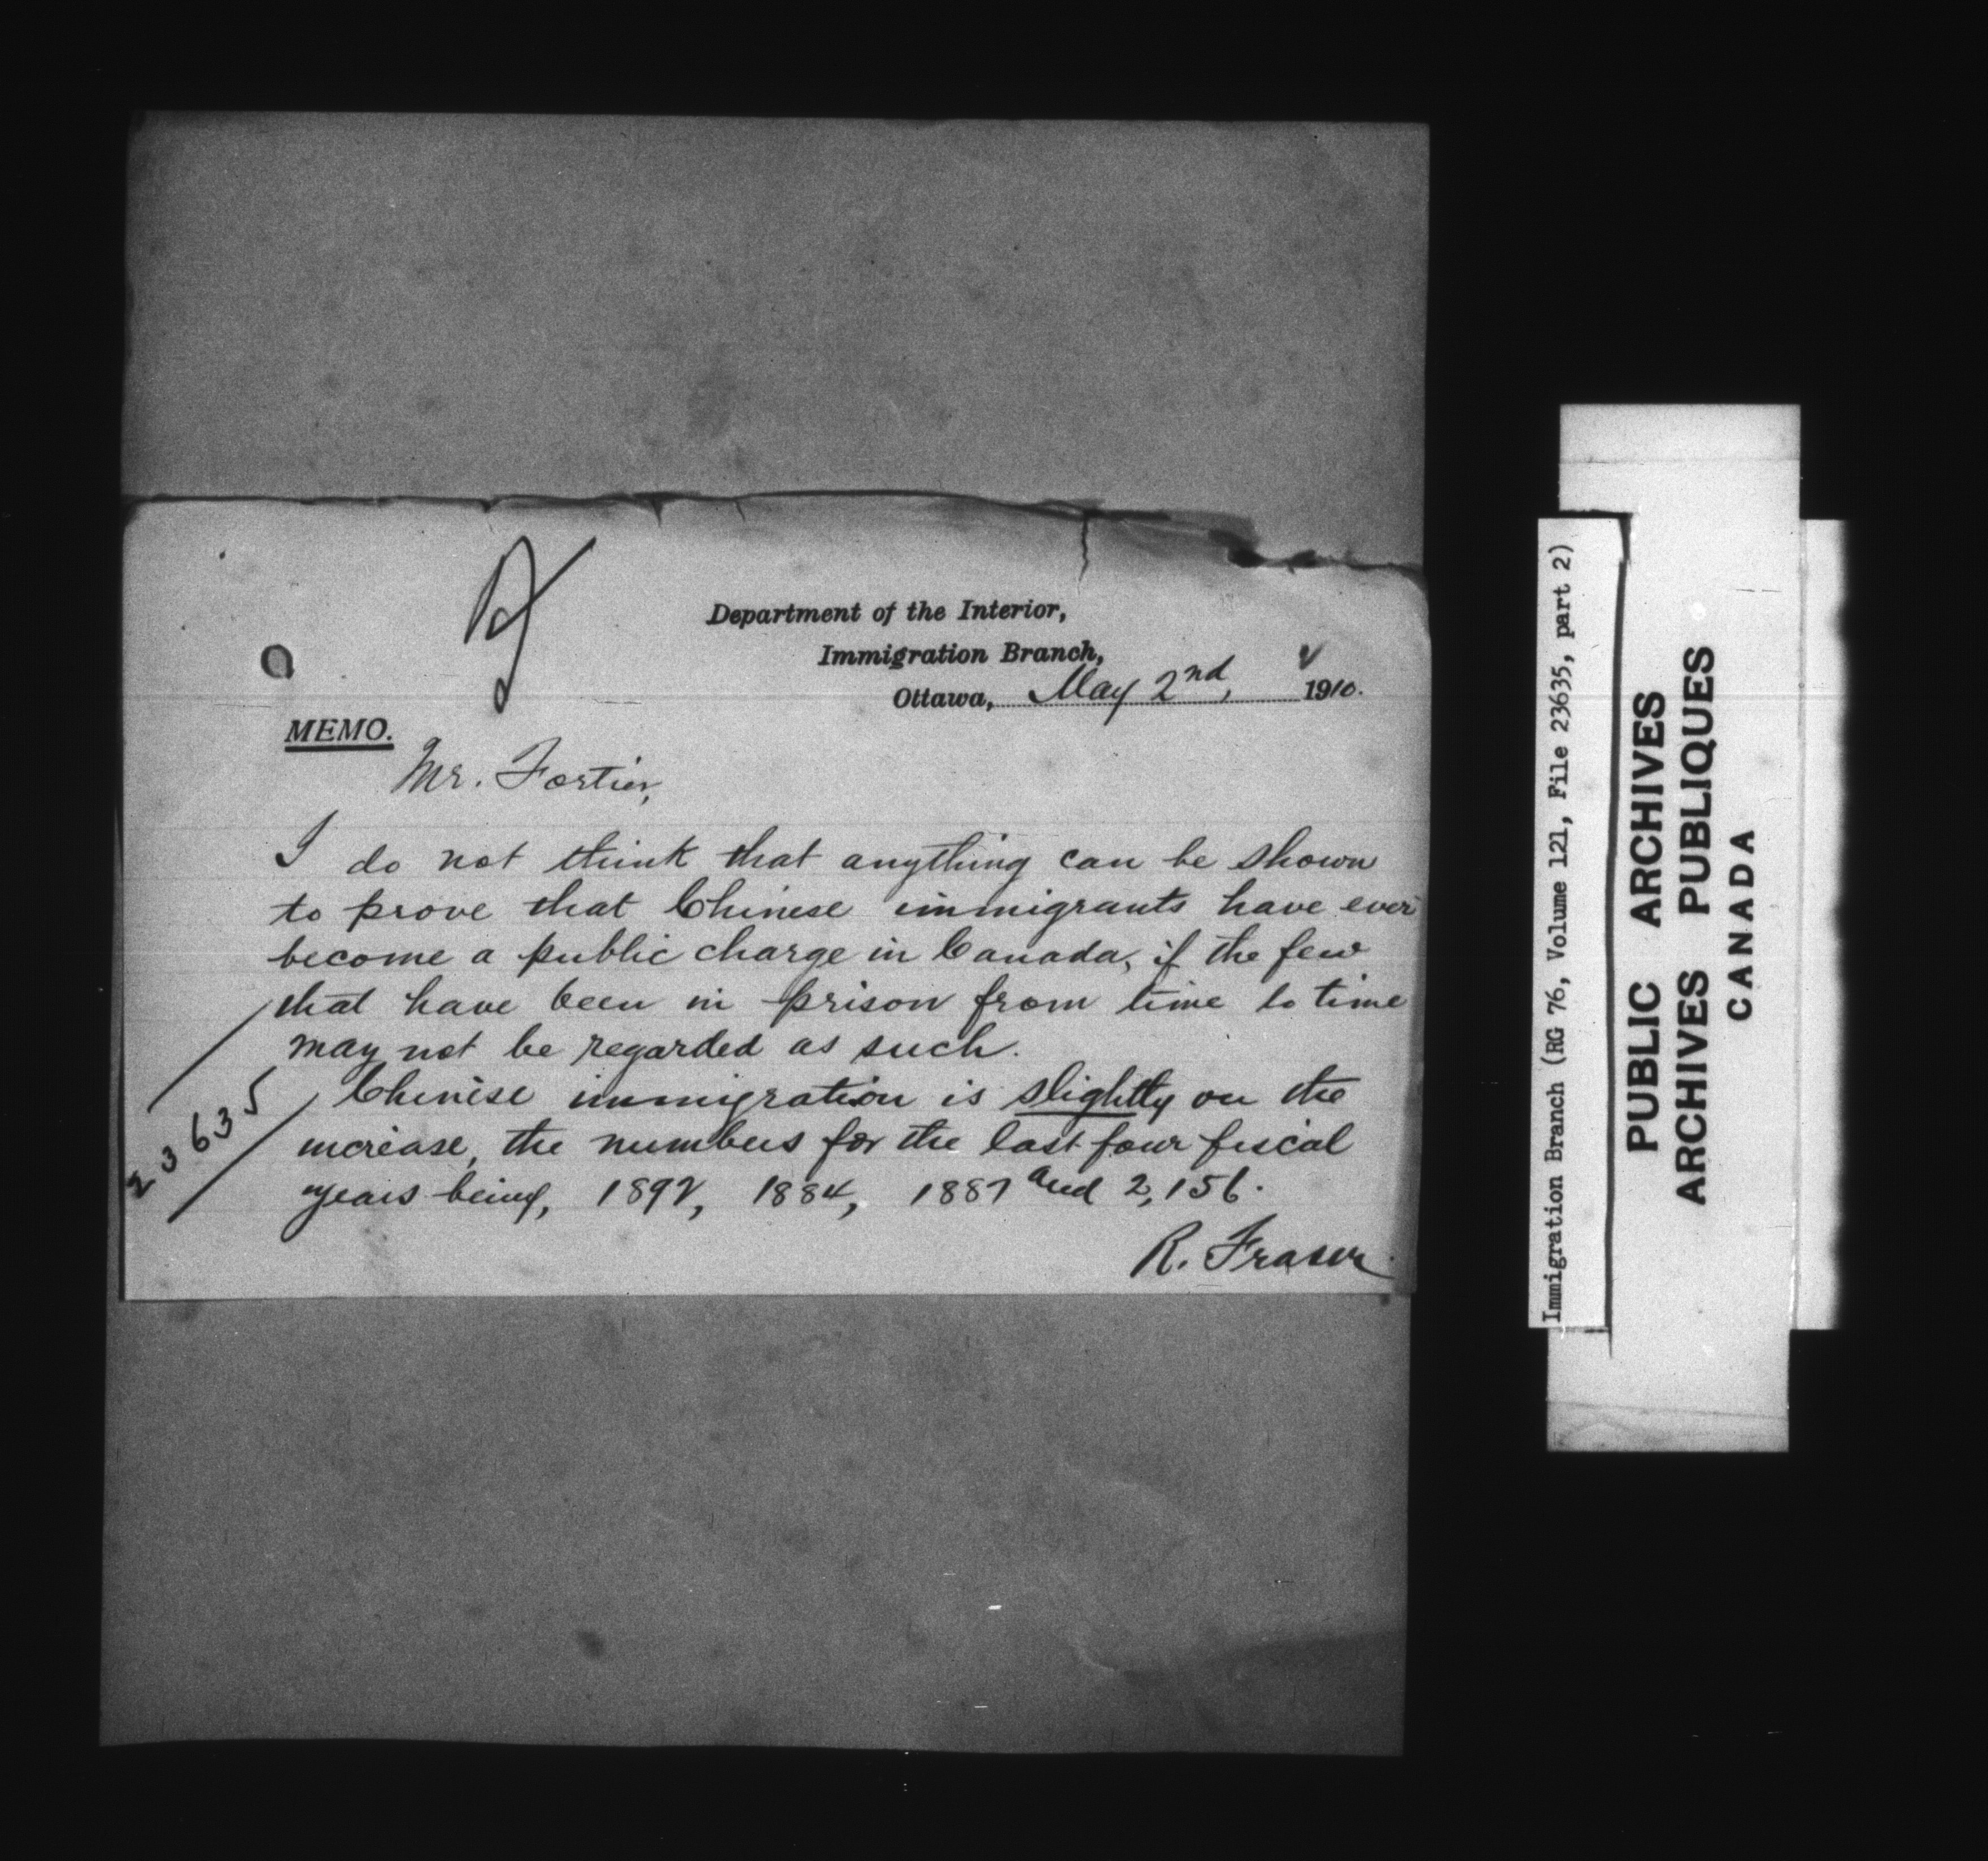 Department of the Interior,
Immigration Branch,
Ottawa, May 2nd, 1910.
MEMO.
Mr. Fortier,
I do not think that anything can be shown
to prove that Chinese immigrants have ever
become a public charge in Canada, if the few
that have been in prison from time to time
may not be regarded as such.
Chinese immigration is slightly on the
increase, the numbers for the last four fiscal
years being, 1892, 1884, 1887 and 2,156.
R. Fraser
23635
Immigration Branch (RG 76, Volume 121, File 23635, part 2)
PUBLIC ARCHIVES
ARCHIVES PUBLIQUES
CANADA